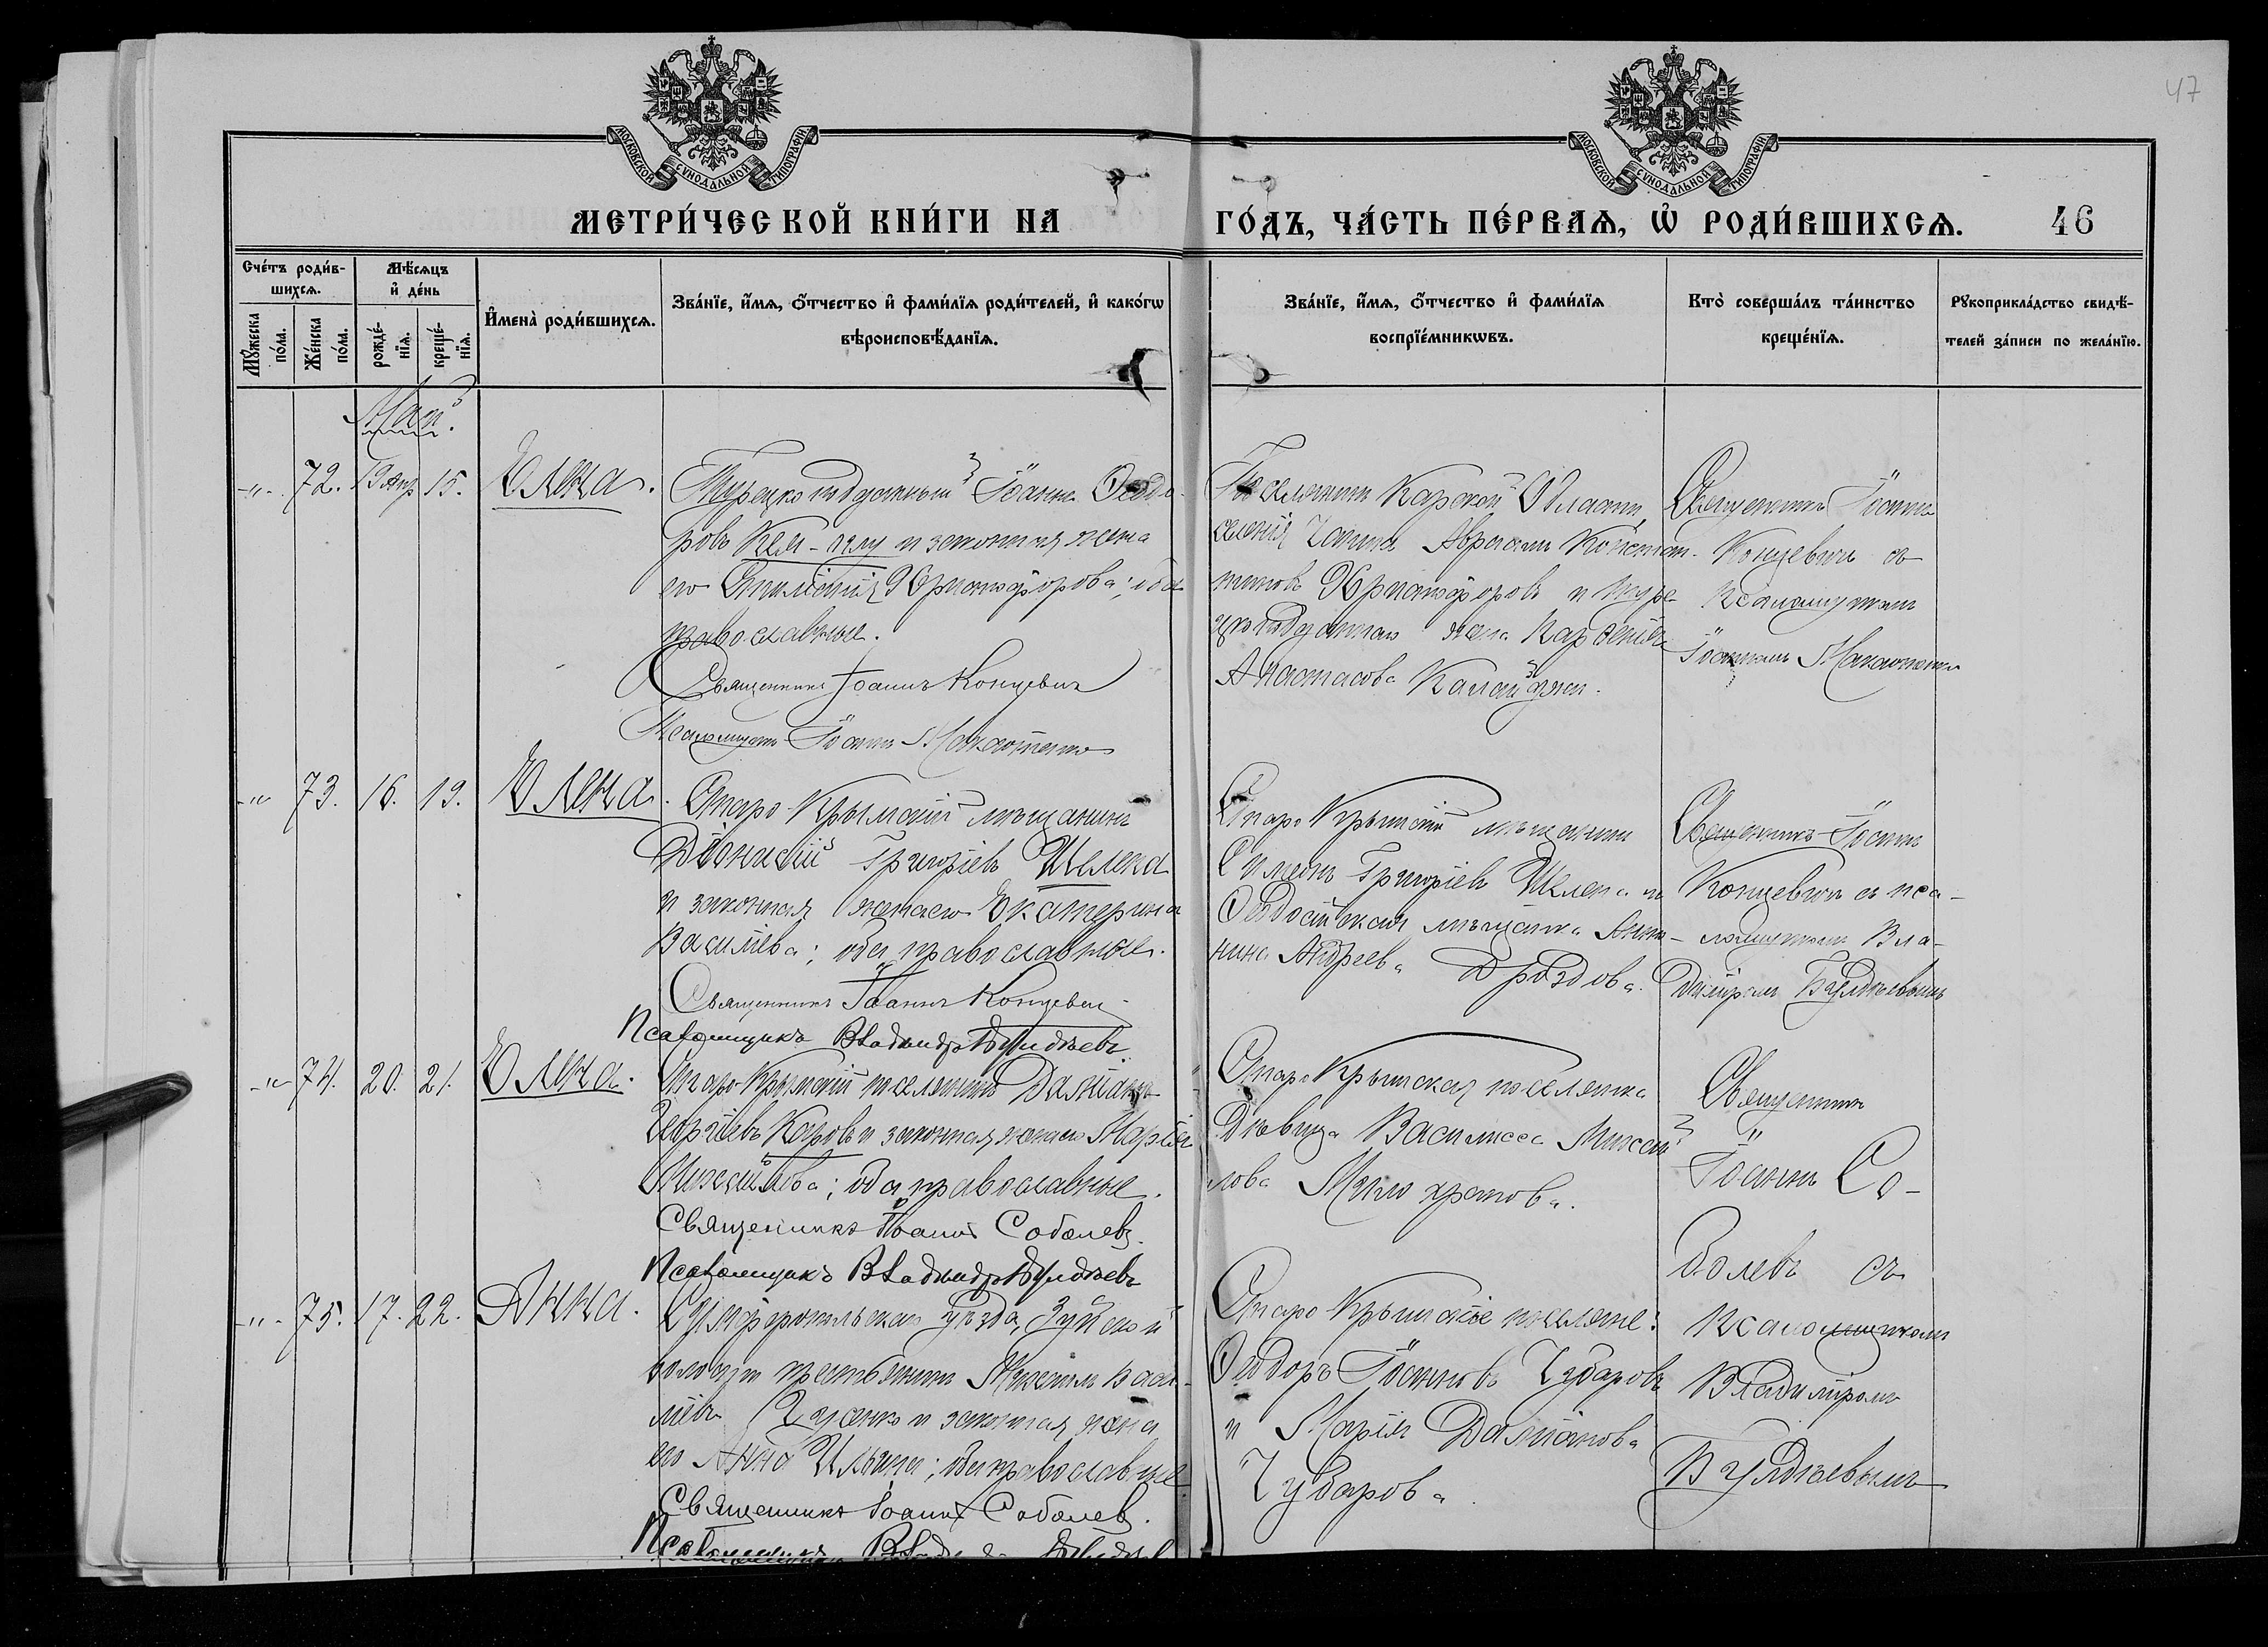 47
МОСКОВСКОЙ СѴНОДАЛЬНОЙ ТИПОГРАФІИ
МОСКОВСКОЙ СѴНОДАЛЬНОЙ ТИПОГРАФІИ
МЕТРИ́ЧЕСКОЙ КНИ́ГИ НА ГО́ДЪ, ЧА́СТЬ ПЕ́РВАѦ, Ѡ҆ РОДИ́ВШИХСѦ. 46
Сче́тъ роди́в-
шихсѧ.
Мꙋ́жеска
по́ла.
Же́нска
по́ла.
Мѣ́сѧцъ
и҆ де́нь
рожде́-
нїѧ.
креще́-
нїѧ.
И҆мена̀ роди́вшихсѧ.
Зва́нїе, и҆́мѧ, ѻ҆́тчество и҆ фами́лїѧ роди́телей, и҆ како́гѡ
вѣроисповѣ́данїѧ.
Зва́нїе, и҆́мѧ, ѻ҆́тчество и҆ фами́лїѧ
воспрїе́мникѡвъ.
Кто̀ соверша́лъ та́инство
креще́нїѧ.
Рꙋкоприкла́дство свидѣ́-
телей за́писи по жела́нїю.
Май.
-"-. 72. 19 Апр 15. Елена.
Турецкоподданный Іоаннъ Ѳеодо-
ровъ и законная жена
его Христофорова; оба
православные.
Священникъ Іоаннъ Концевич
Псаломщикъ Іоаннъ
Поселянинъ Карской Области,
селенія Авраамъ Констан-
тиновъ Христофоровъ и Туре-
цкоподданнаго жена
Анастасова
Священникъ Іоаннъ
Концевичъ съ
псаломщикомъ
Іоанномъ
-"- 73. 16. 19. Елена.
Старо-Крымскій мѣщанинъ
Діонисій Григоріевъ Шелека
и законная жена его Екатерина
Василіева; оба православные.
Священникъ Іоаннъ Концевич
Псаломщикъ Владиміръ Булдѣевъ
Старо-Крымскій мѣщанинъ
Симеонъ Григоріевъ Шелека и
Ѳеодосійская мѣщанка Анто-
нина Андреева Дроздова.
Священникъ Іоаннъ
Концевичъ съ пса-
ломщикомъ Вла-
диміромъ Булдѣевымъ
-"- 74. 20. 21. Елена.
Старо-Крымскій поселянинъ Даміанъ
Георгіевъ Каровъ и законная жена его Марія
Михайлова; оба православные.
Священникъ Іоаннъ Соболевъ.
Псаломщикъ Владиміръ Булдѣевъ
Старо-Крымская поселянка
Дѣвица Василисса Михай-
лова
Священникъ
Іоаннъ Со-
болевъ съ
псаломщикомъ
Владиміромъ
Булдѣевымъ
-"-. 75. 17. 22. Анна.
Симферопольскаго уѣзда, Зуйской
волости крестьянинъ Михаилъ Васи-
ліевъ и законная жена
его Анна Ильина; оба православные
Священникъ Іоаннъ Соболевъ.
Псаломщикъ
Старо-Крымскіе поселяне:
Ѳеодоръ Іоанновъ Чубаровъ
и Марія Даміанова
Чубарова.